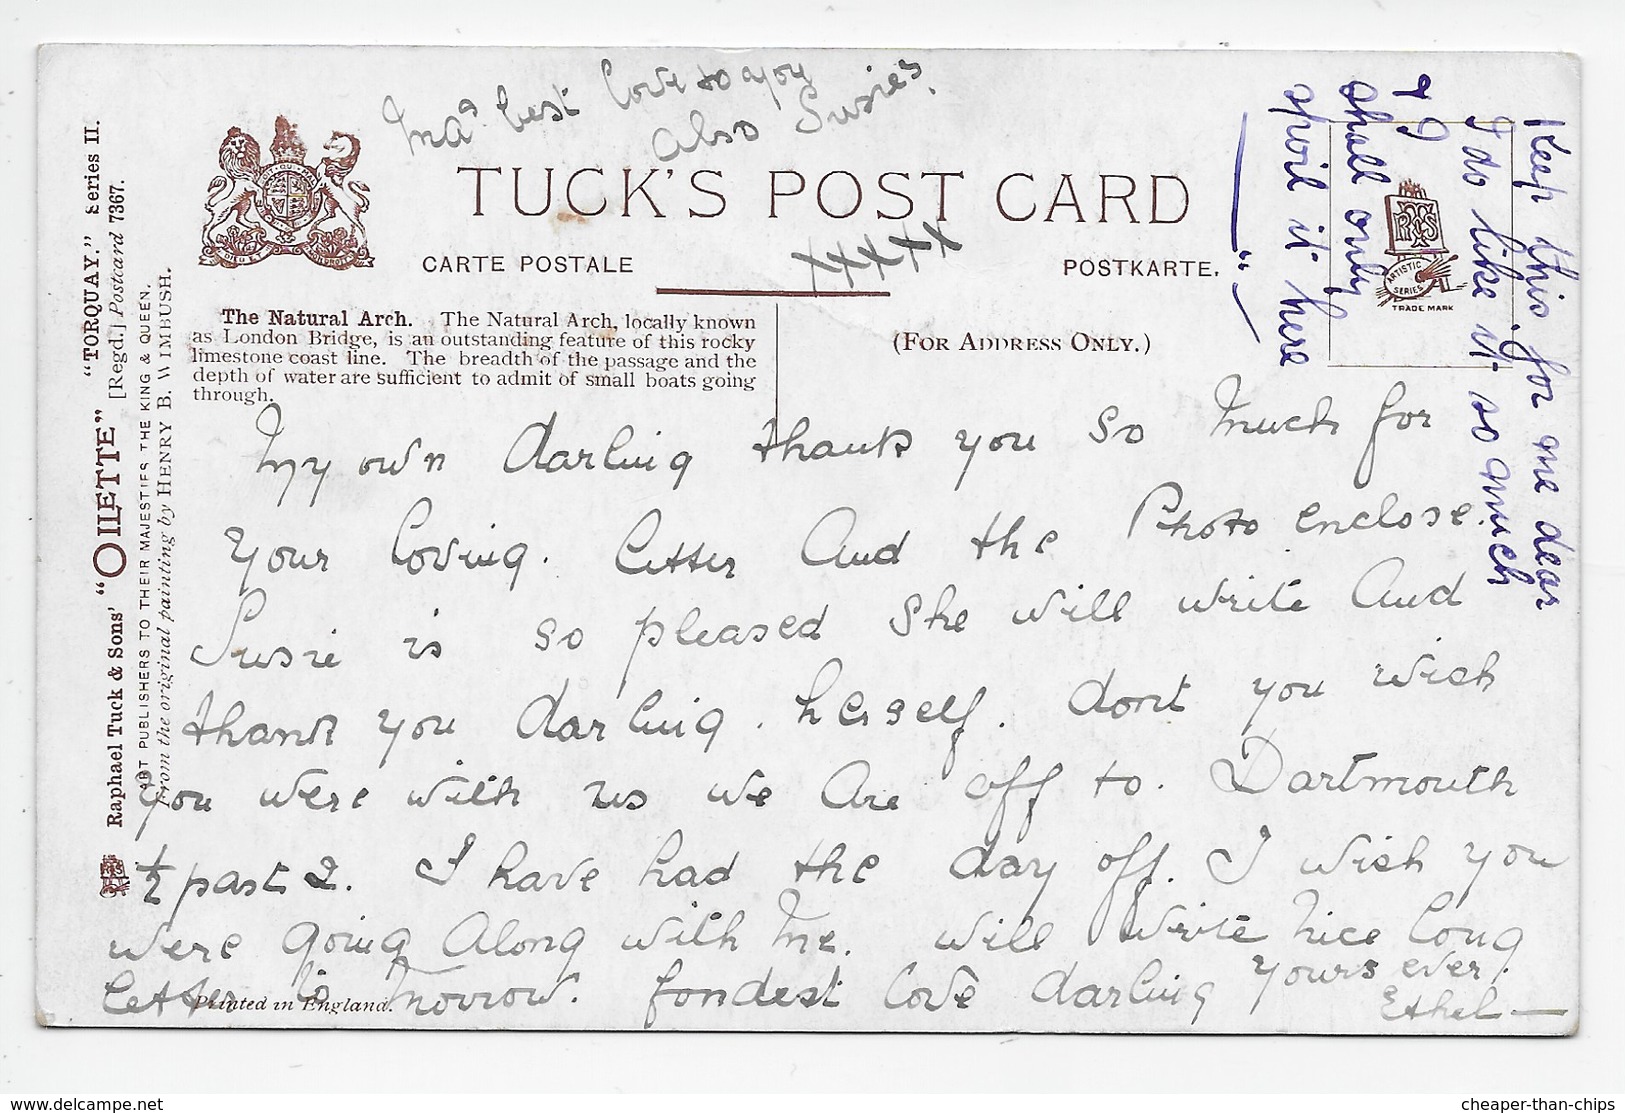 Ma's best love to you
also Susie's.
TUCK'S POST CARD
CARTE POSTALE
POSTKARTE.
xxxxx
(FOR ADDRESS ONLY.)
The Natural Arch. The Natural Arch, locally known
as London Bridge, is an outstanding feature of this rocky
limestone coast line. The breadth of the passage and the
depth of water are sufficient to admit of small boats going
through.
My own darling thank you so much for
your loving. letter and the Photo enclose.
Susie is so pleased she will write and
thank you darling. herself. dont you wish
you were with us we are off to. Dartmouth
½ past 2. I have had the day off. I wish you
were going along with me. will write nice long
letter to morrow. fondest love darling yours ever.
Ethel —
Printed in England.
Keep this for me dear
I do like it so much
& I
shall only
spoil it here
ARTISTIC
SERIES
TRADE MARK
Raphael Tuck & Sons' "OILETTE" "TORQUAY." Series II.
[Regd.] Postcard 7367.
ART PUBLISHERS TO THEIR MAJESTIES THE KING & QUEEN.
From the original painting by HENRY B. WIMBUSH.
www.delcampe.net
cheaper-than-chips